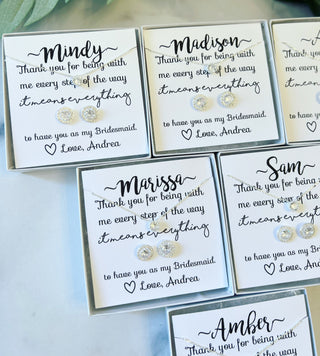 ~Mindy~
Thank you for being with
me every step of the way
it means everything
to have you as my Bridesmaid.
♡ Love, Andrea
~Madison~
Thank you for being with
me every step of the way
it means everything
to have you as my Bridesmaid.
♡ Love, Andrea
~A
Than
me ev
it me
to ha
~Marissa~
Thank you for being with
me every step of the way
it means everything
to have you as my Bridesmaid.
♡ Love, Andrea
~Sam~
Thank you for being
me every step of the
it means everyth
to have you as my Bridesm
♡ Love, Andrea
~Amber~
Thank you for being with